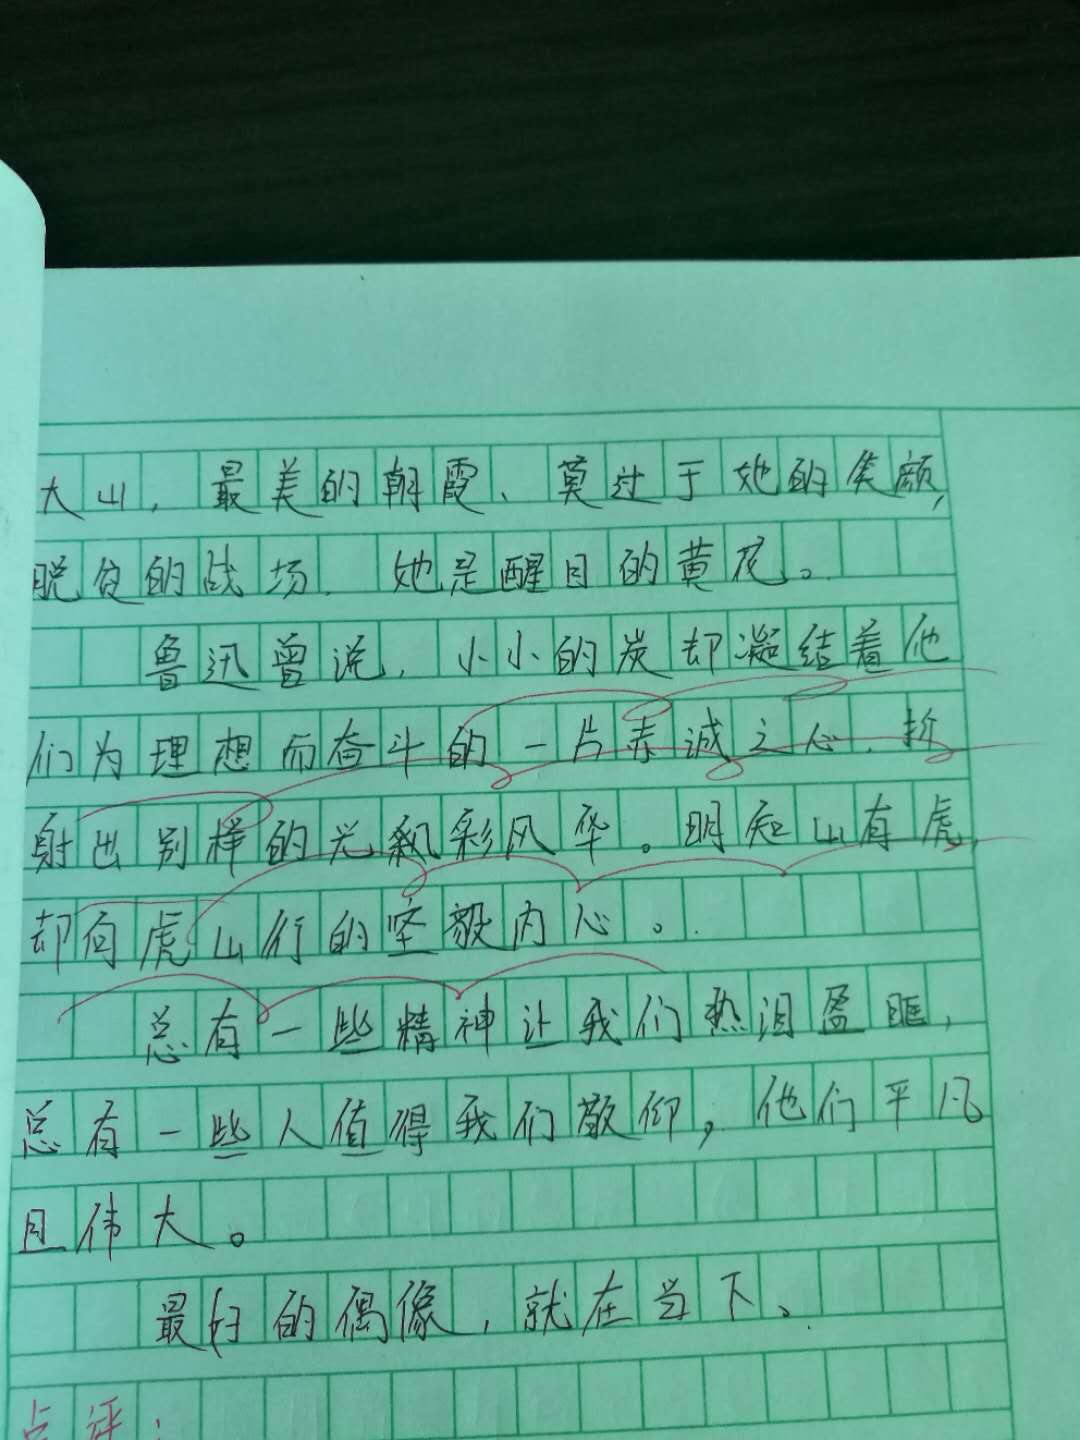 大山，最美的朝霞、莫过于她的笑颜，
脱贫的战场．她是醒目的黄花。
鲁迅曾说，小小的炭却凝结着他
们为理想而奋斗的一片赤诚之心．折
射出别样的光彩风华。明知山有虎，
却向虎山行的坚毅内心。
总有一些精神让我们热泪盈眶，
总有一些人值得我们敬仰，他们平凡
且伟大。
最好的偶像，就在当下、
点评：